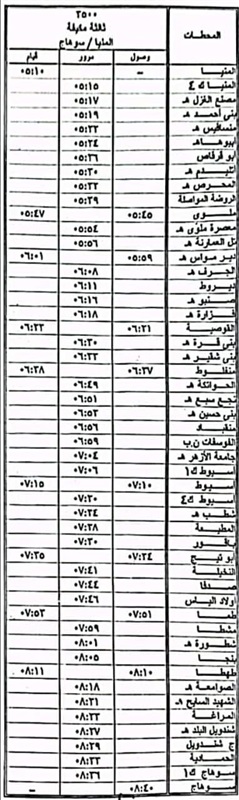 ٢٥٠٠
ثالثة مكيفة
المنيا / سوهاج
المحطات وصول مرور قيام
المنيا – ٠٥:١٠
المنيا ك ٤ ٠٥:١٥
مصنع الغزل هـ ٠٥:١٧
بنى أحمد هـ ٠٥:١٩
منسافيس هـ ٠٥:٢٢
أبيوها هـ ٠٥:٢٤
أبو قرقاص ٠٥:٢٦
أتليدم هـ ٠٥:٣٠
المحرص هـ ٠٥:٣٣
الروضة المواصلة ٠٥:٣٩
ملوى ٠٥:٤٥ ٠٥:٤٧
معصرة ملوى هـ ٠٥:٥٤
تل العمارنة هـ ٠٥:٥٦
دير مواس هـ ٠٥:٥٩ ٠٦:٠١
الجرف هـ ٠٦:٠٨
ديروط ٠٦:١١
صنبو هـ ٠٦:١٦
فزارة هـ ٠٦:١٨
القوصية ٠٦:٢١ ٠٦:٢٣
بنى قرة هـ ٠٦:٣٠
بنى شقير هـ ٠٦:٣٣
منفلوط ٠٦:٣٧ ٠٦:٣٨
الحواتكة هـ ٠٦:٤٩
نجع سبع هـ ٠٦:٥١
بنى حسين هـ ٠٦:٥٣
منقباد ٠٦:٥٦
الفوسفات ن.ب ٠٦:٥٩
جامعة الأزهر هـ ٠٧:٠٤
أسيوط ك ١ ٠٧:٠٦
أسيوط ٠٧:١٠ ٠٧:١٥
أسيوط ك ٤ ٠٧:٢٠
شطب هـ ٠٧:٢٤
المطيعة ٠٧:٢٨
باقور ٠٧:٣٠
أبو تيج ٠٧:٣٤ ٠٧:٣٥
النخيلة ٠٧:٤١
صدفا ٠٧:٤٤
أولاد الياس ٠٧:٤٦
طما ٠٧:٥١ ٠٧:٥٣
مشطا ٠٧:٥٩
شطورة هـ ٠٨:٠١
بنجا ٠٨:٠٥
طهطا ٠٨:١٠ ٠٨:١١
الصوامعة هـ ٠٨:١٨
الشهيد السايح هـ ٠٨:٢١
المراغة ٠٨:٢٣
شندويل البلد هـ ٠٨:٢٧
ج شندويل ٠٨:٢٩
الحمادية ٠٨:٣٣
سوهاج ك ١ ٠٨:٣٦
سوهاج ٠٨:٤٠ –